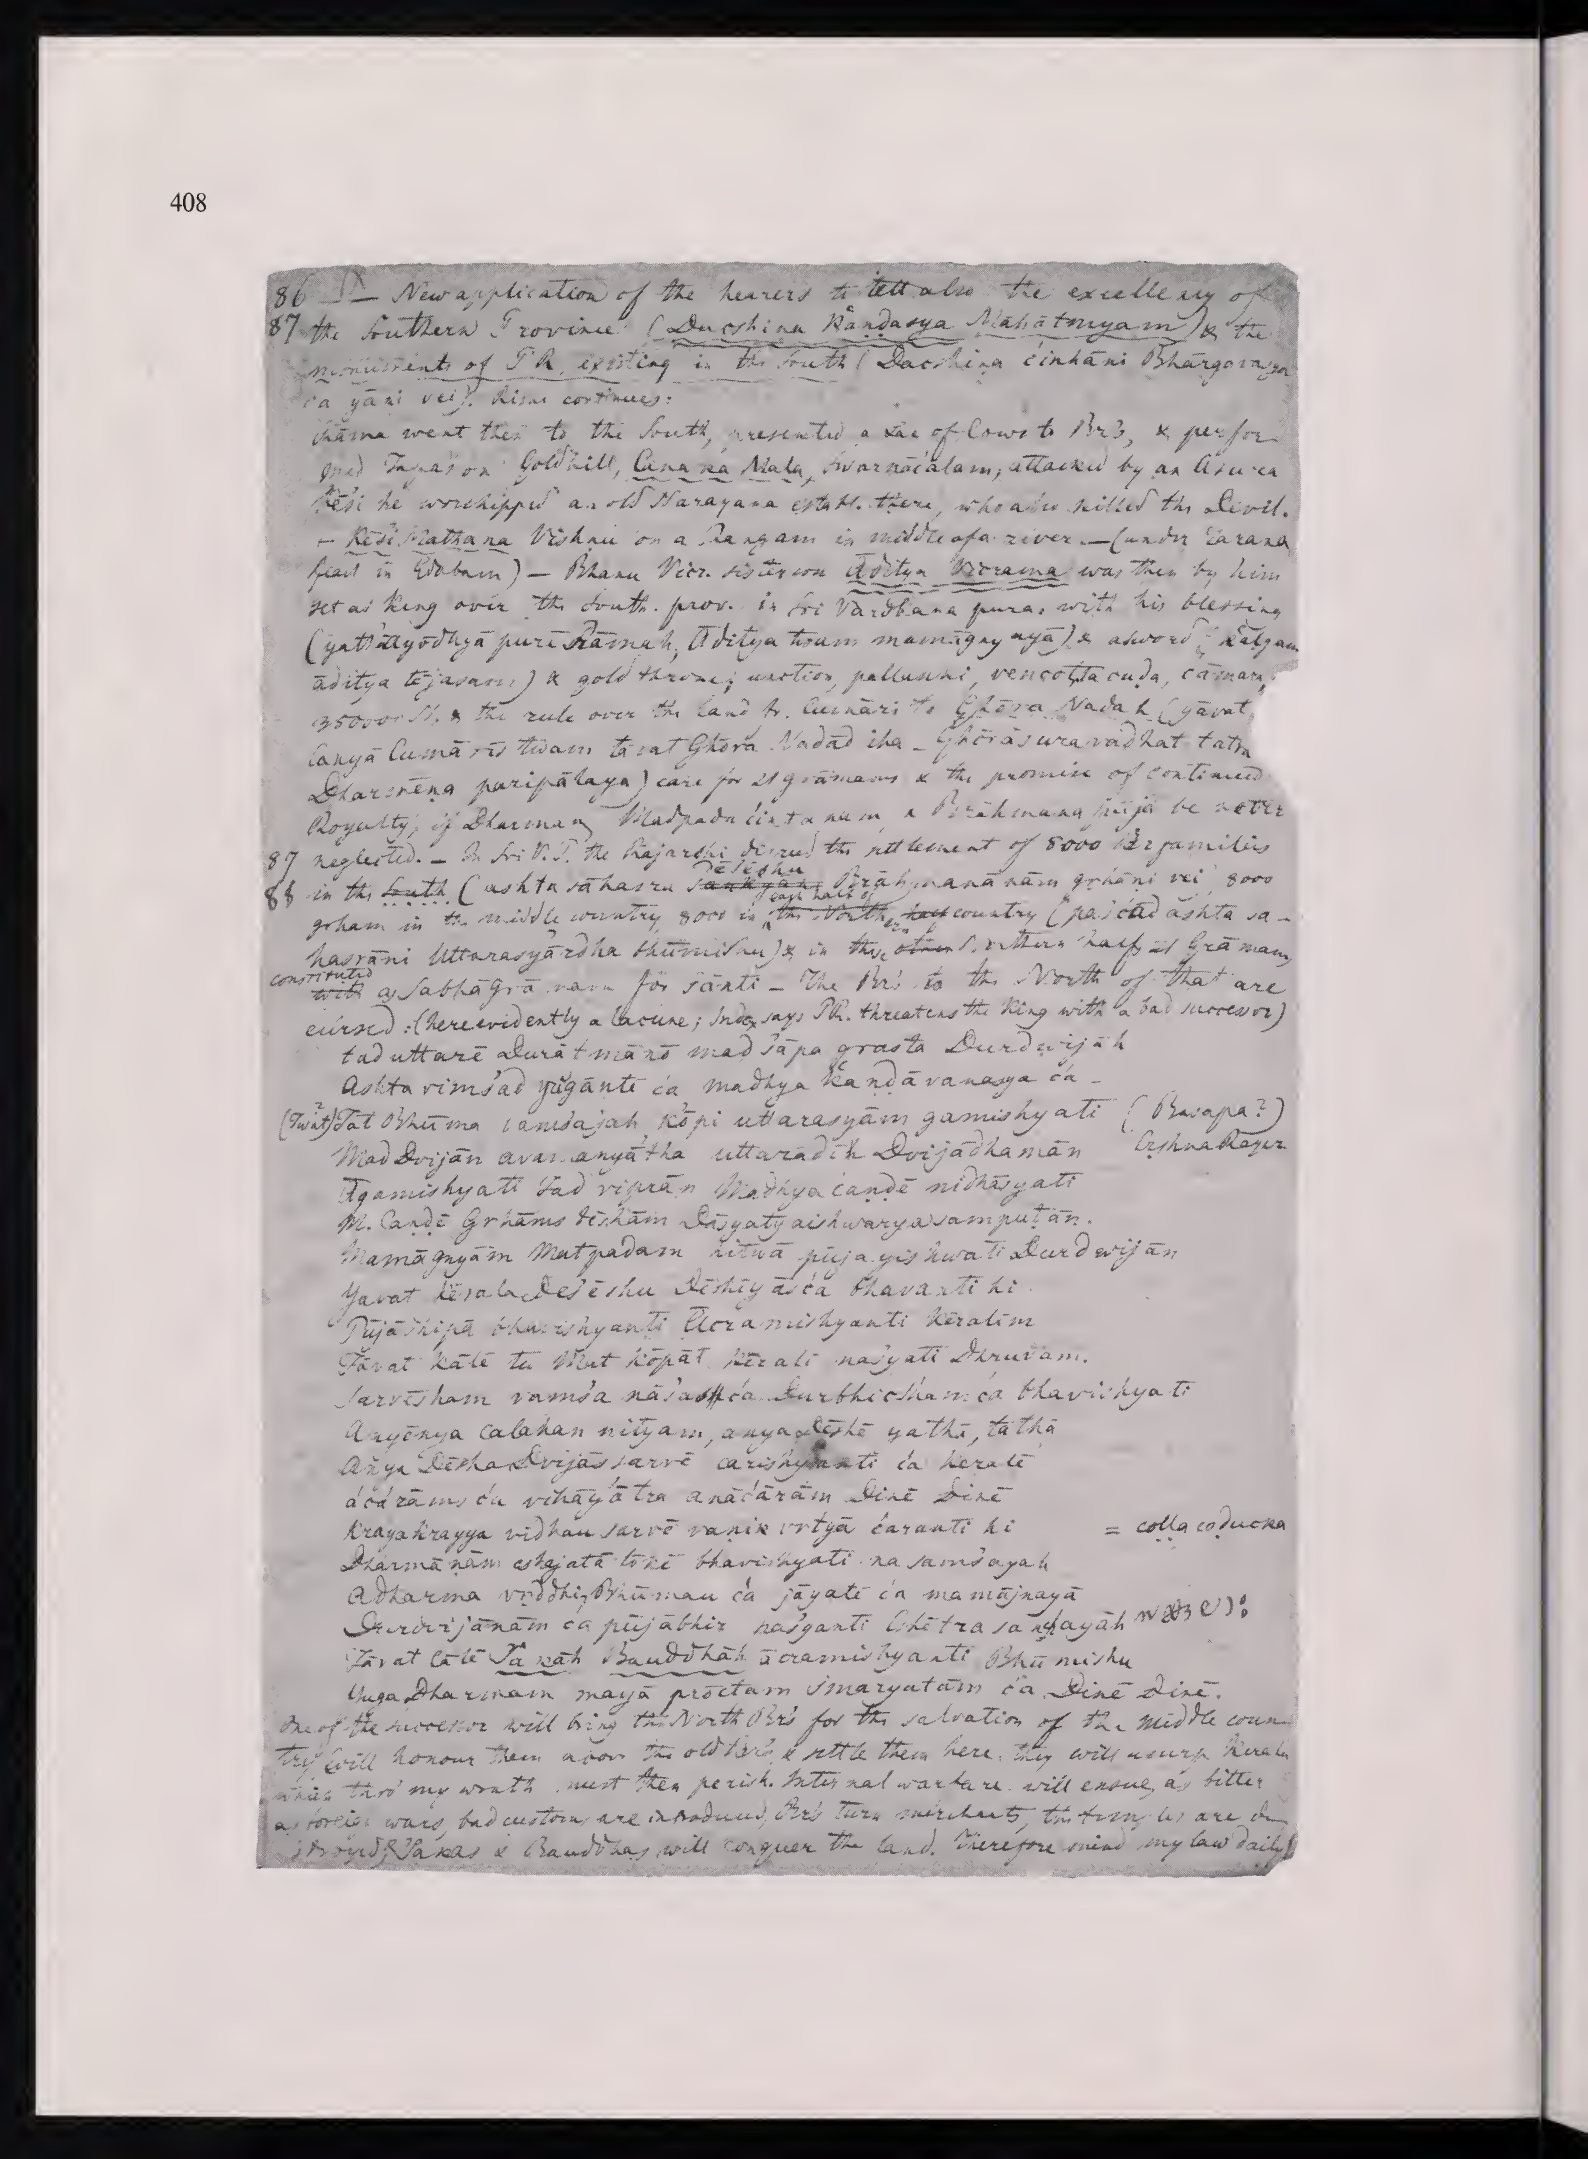 408
86 — New application of the hearers to tell also the excellency of
87 the Southern Province (Dacshina Kāṇḍasya Māhātmyam) & the
monuments of P R. existing in the South (Dacshiṇa ćinhāni Bhārgavasya
ća yāni vei). Rishi continues:
Rāma went then to the South, presented a Lac of Cows to Br's, & perfor-
med Tapas on Goldhill, Canaka Mala, Swarnāćalam, attacked by an Asura
Kēśi he worshipped an old Narayana establ. there, who also killed the Devil.
— Kēśi Mathana Vishnu on a Rangam in middle of a river. — (under
feast in Edabam) — Bhanu Vicr. sisterson Āditya Vicrama was then by him
set as King over the South. prov. in Sri Vardhana pura, with his blessing
(yathāyōdhyā purē Rāmah, Āditya twam mamāgnyayā) & a sword
āditya tējasam) & gold throne, unction, pallunki, vencoṭṭa cuḍa, ćāmara,
35000 N. & the rule over the land fr. Cumāri to Ghōra Nadah (yāvat
Canyā Cumārīs twam tāvat Ghōra Nadād iha — Ghōrāsura vadhāt tatra
Dharmēṇa paripālaya) care for 21 grāmams & the promise of continued
Royalty, if Dharmam, Madpada ćintanam & Brāhmaṇa pūjā be never
87 neglected. — In Sri V. P. the Rajarshi desired the settlement of 8000 Br families
dēsēshu
88 in the South (ashta sāhasra Brāhmaṇānām gṛhāṇi vei 8000
each half of
gṛham in the middle country, 8000 in the North half country (paśćād ashta sa-
hasrāṇi Uttarasyārdha bhūmishu) & in the other Southern half 21 Grāmam
constituted
with as Sabhā Grāmam for śānti — The Br's to the North of that are
cursed: (here evidently a lacune; Index says P.R. threatens the King with a bad successor)
tad uttarē Durātmānō mad śāpa grasta Durdwijāh
Ashtavimśad yugāntē ća madhya Kaṇḍāvanasya ća —
(Twat?) Tat Bhūma vamśajah kōpi uttarasyām gamishyati (Basapa?)
Mad Dvijān avamanyātha uttarādīn Dvijādhamān Cṛshna Rāyer
Āgamishyati tad viprān Madhya ćaṇḍē nidhāsyati
M. Caṇḍē Gṛhāms tēshām Dāsyaty aishwarya sampuṭān.
Mamāgnyām Matpadam hitwā pūjayishwati Durdwijān
Yavat Kērala Dēśēshu Dēshīyāśća bhavanti hi
Pūjādhipā bhavishyanti Ācramishyanti Kēralīm
Tāvat kālē tu Mat kōpāt Kērali naśyati Dhruvam.
Sarvēsham vamśa nāśaśća Durbhicshamća bhavishyati
Anyōnya calahan nityam, anya dēshē yathā, tathā
Anya Dēsha Dvijās sarvē carishyanti ća Keralē
āćārāms ću vihāyātra anāćārām Dinē Dinē
Kraya Krayya vidhau sarvē vaṇik vṛtyā ćaranti hi = coḷḷa coḍucka
Dharmāṇām lōkē bhavishyati na samśayah
Adharma vṛddhiṛ Bhūmau ća jāyatē ća mamājnayā
Durdvijānām ća pūjābhir naśyanti Cshētra
Tāvat Cālē Śākāh Bauddhāh ācramishyanti Bhūmishu
Yuga Dharmam mayā prōctam smaryatām ća Dinē Dinē.
One of the successor will bring the North Br's for the salvation of the middle coun-
try will honour them above the old Br's, & settle them here. they will usurp Kerala
which thro' my wrath must then perish. Internal warfare will ensue, as bitter
as foreign wars, bad customs are introduced, Br's turn merchants, the temples are de-
stroyed, & Śakas & Bauddhas will conquer the land. Therefore mind my law daily